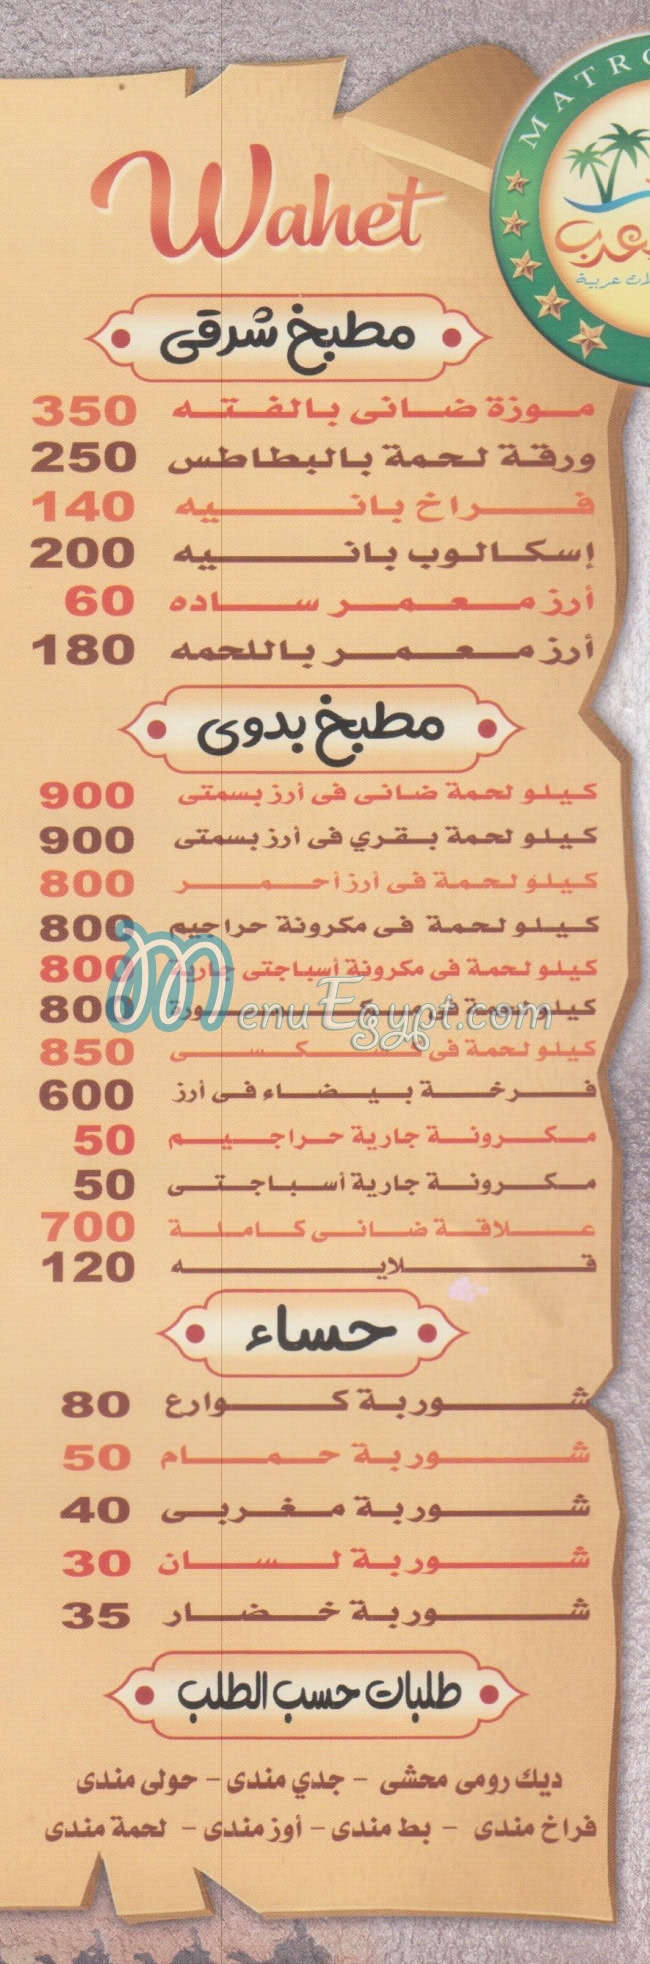 MATRO
Wahet
عرب
عربية
مطبخ شرقى
موزة ضانى بالفته 350
ورقة لحمة بالبطاطس 250
فراخ بانيه 140
إسكالوب بانيه 200
أرز معمر ساده 60
أرز معمر باللحمه 180
مطبخ بدوى
كيلو لحمة ضانى فى أرز بسمتى 900
كيلو لحمة بقري فى أرز بسمتى 900
كيلو لحمة فى أرز أحمر 800
كيلو لحمة فى مكرونة حراجيم 800
كيلو لحمة فى مكرونة أسباجتى جارية 800
كيلو لحمة فى 800
MenuEgypt.com
كيلو لحمة فى كسكسى 850
فرخة بيضاء فى أرز 600
مكرونة جارية حراجيم 50
مكرونة جارية أسباجتى 50
علاقة ضانى كاملة 700
قلايه 120
حساء
شوربة كوارع 80
شوربة حمام 50
شوربة مغربى 40
شوربة لسان 30
شوربة خضار 35
طلبات حسب الطلب
ديك رومى محشى - جدي مندى - حولى مندى
فراخ مندى - بط مندى - أوز مندى - لحمة مندى